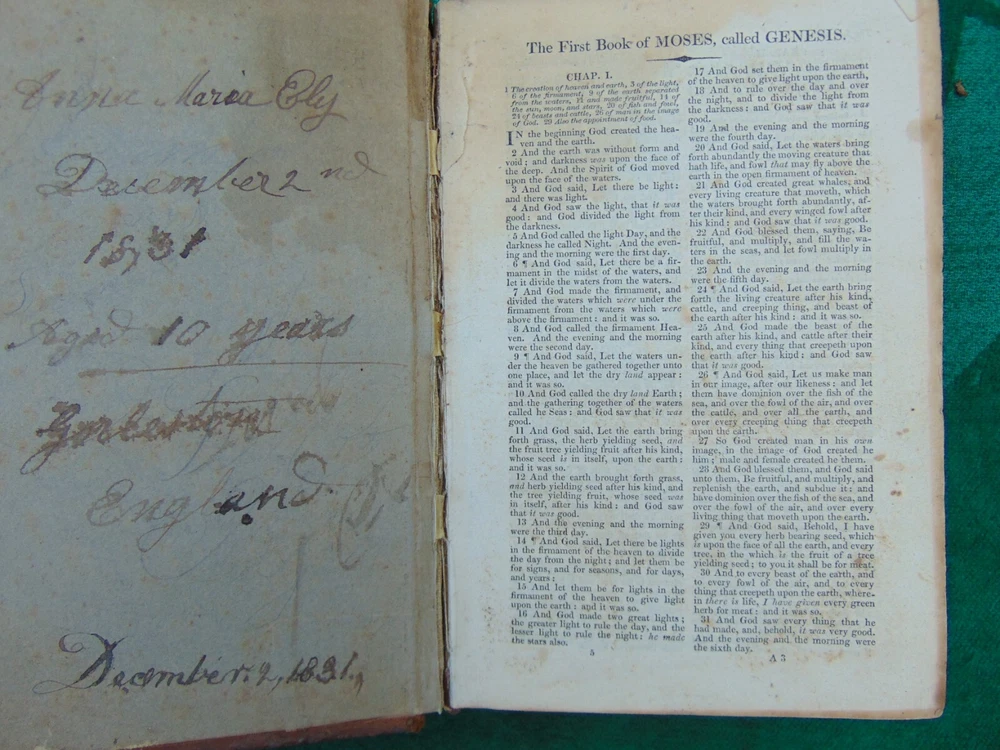 Anna Maria Ely
December 2nd
1831
Aged 10 years
England
December. 2, 1831.,
The First Book of MOSES, called GENESIS.
CHAP. I.
1 The creation of heaven and earth, 3 of the light,
6 of the firmament, 9 of the earth separated
from the waters, 11 and made fruitful, 14 of
the sun, moon, and stars, 20 of fish and fowl,
24 of beasts and cattle, 26 of man in the image
of God. 29 Also the appointment of food.
IN the beginning God created the hea-
ven and the earth.
2 And the earth was without form and
void; and darkness was upon the face of
the deep. And the Spirit of God moved
upon the face of the waters.
3 And God said, Let there be light:
and there was light.
4 And God saw the light, that it was
good: and God divided the light from
the darkness.
5 And God called the light Day, and the
darkness he called Night. And the even-
ing and the morning were the first day.
6 ¶ And God said, Let there be a fir-
mament in the midst of the waters, and
let it divide the waters from the waters.
7 And God made the firmament, and
divided the waters which were under the
firmament from the waters which were
above the firmament: and it was so.
8 And God called the firmament Hea-
ven. And the evening and the morning
were the second day.
9 ¶ And God said, Let the waters un-
der the heaven be gathered together unto
one place, and let the dry land appear:
and it was so.
10 And God called the dry land Earth;
and the gathering together of the waters
called he Seas: and God saw that it was
good.
11 And God said, Let the earth bring
forth grass, the herb yielding seed, and
the fruit tree yielding fruit after his kind,
whose seed is in itself, upon the earth:
and it was so.
12 And the earth brought forth grass,
and herb yielding seed after his kind, and
the tree yielding fruit, whose seed was
in itself, after his kind: and God saw
that it was good.
13 And the evening and the morning
were the third day.
14 ¶ And God said, Let there be lights
in the firmament of the heaven to divide
the day from the night; and let them be
for signs, and for seasons, and for days,
and years:
15 And let them be for lights in the
firmament of the heaven to give light
upon the earth: and it was so.
16 And God made two great lights;
the greater light to rule the day, and the
lesser light to rule the night: he made
the stars also.
5
17 And God set them in the firmament
of the heaven to give light upon the earth,
18 And to rule over the day and over
the night, and to divide the light from
the darkness: and God saw that it was
good.
19 And the evening and the morning
were the fourth day.
20 And God said, Let the waters bring
forth abundantly the moving creature that
hath life, and fowl that may fly above the
earth in the open firmament of heaven.
21 And God created great whales, and
every living creature that moveth, which
the waters brought forth abundantly, af-
ter their kind, and every winged fowl after
his kind: and God saw that it was good.
22 And God blessed them, saying, Be
fruitful, and multiply, and fill the wa-
ters in the seas, and let fowl multiply in
the earth.
23 And the evening and the morning
were the fifth day.
24 ¶ And God said, Let the earth bring
forth the living creature after his kind,
cattle, and creeping thing, and beast of
the earth after his kind: and it was so.
25 And God made the beast of the
earth after his kind, and cattle after their
kind, and every thing that creepeth upon
the earth after his kind: and God saw
that it was good.
26 ¶ And God said, Let us make man
in our image, after our likeness: and let
them have dominion over the fish of the
sea, and over the fowl of the air, and over
the cattle, and over all the earth, and
over every creeping thing that creepeth
upon the earth.
27 So God created man in his own
image, in the image of God created he
him; male and female created he them.
28 And God blessed them, and God said
unto them, Be fruitful, and multiply, and
replenish the earth, and subdue it: and
have dominion over the fish of the sea, and
over the fowl of the air, and over every
living thing that moveth upon the earth.
29 ¶ And God said, Behold, I have
given you every herb bearing seed, which
is upon the face of all the earth, and every
tree, in the which is the fruit of a tree
yielding seed; to you it shall be for meat.
30 And to every beast of the earth, and
to every fowl of the air, and to every
thing that creepeth upon the earth, where-
in there is life, I have given every green
herb for meat: and it was so.
31 And God saw every thing that he
had made, and, behold, it was very good.
And the evening and the morning were
the sixth day.
A 3